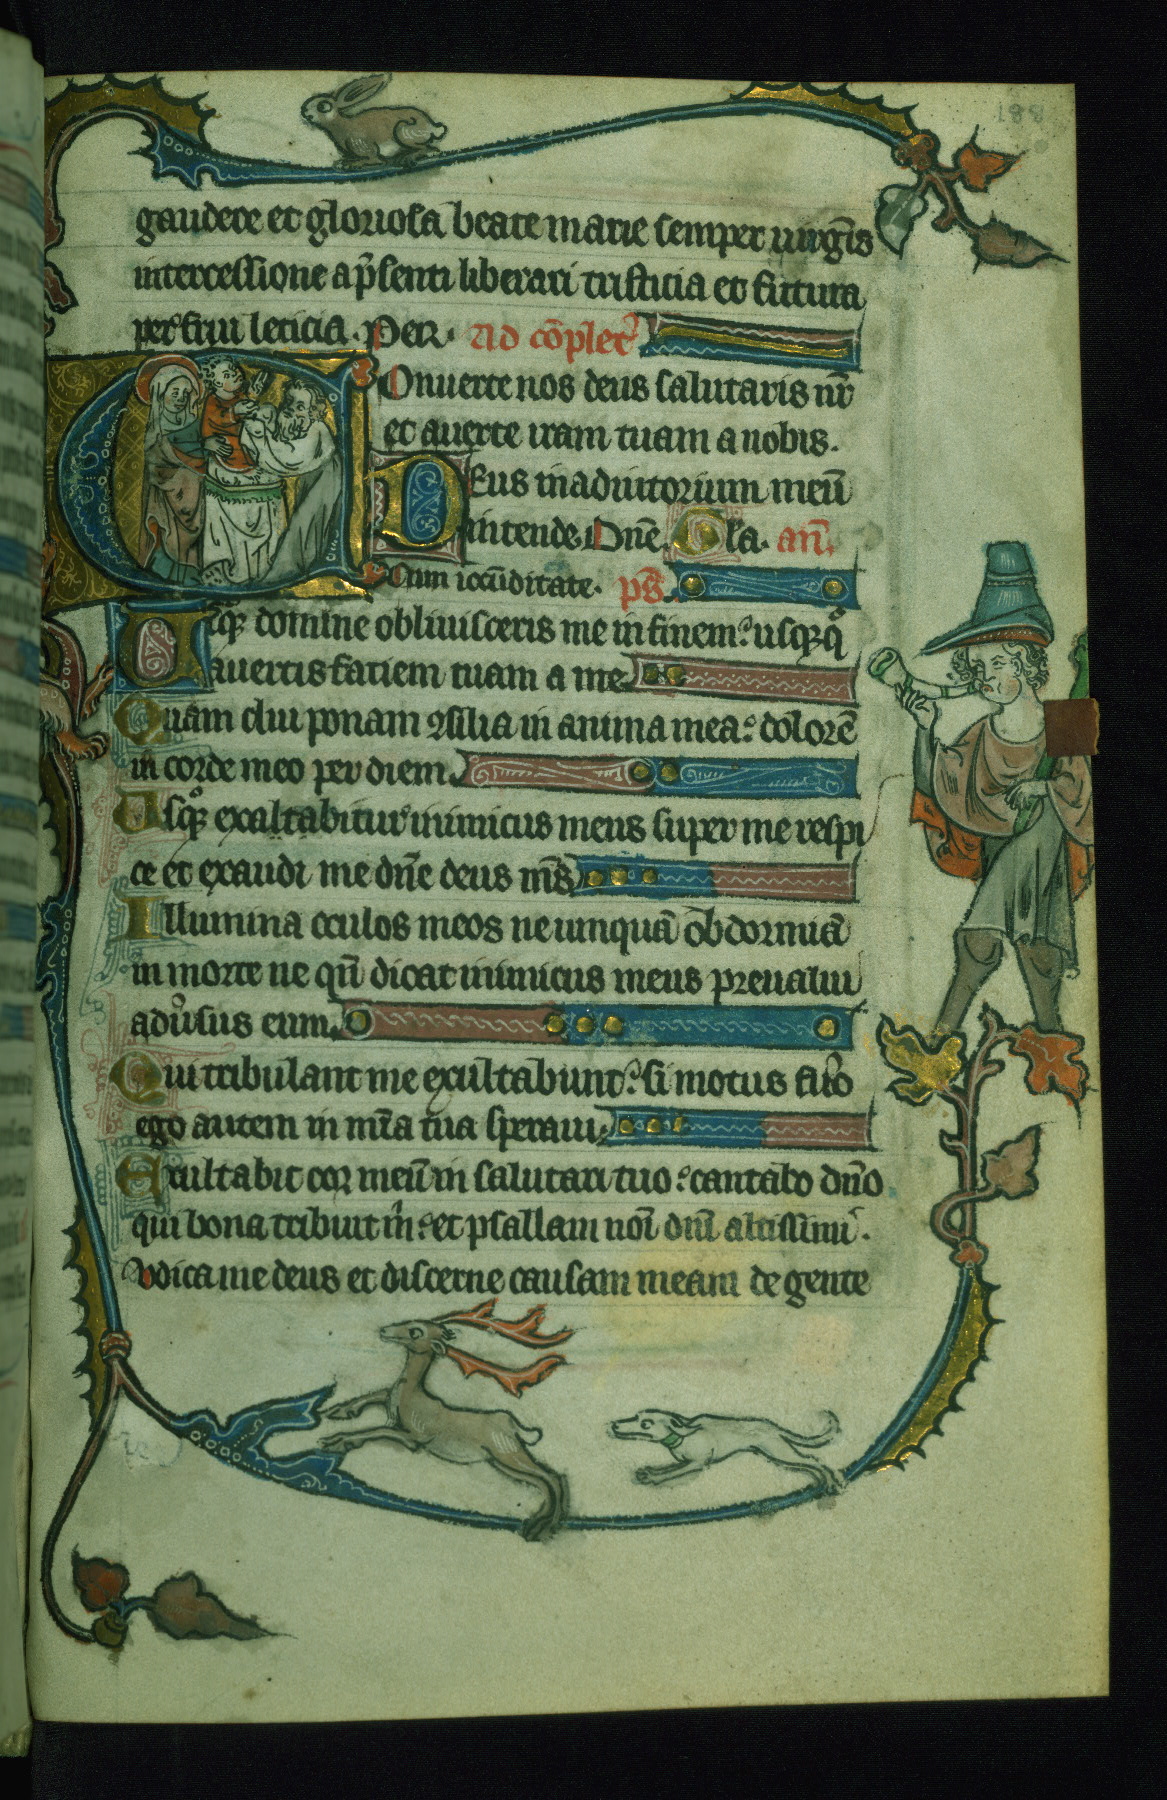 188
gaudere et gloriosa beate marie semper uirgīs
intercessione a p̄senti liberari tristicia et futura
perfrui leticia. Per. Ad cōplet᷒
Onuerte nos deus salutaris nr̄
et auerte iram tuam a nobis.
Deus in adiutorium meū
intende. Dn̄e. Gl̄a. an̄.
Cum iocūditate. ps̄.
Usqꝫ domine obliuisceris me in finem? usqꝫ q̊
auertis faciem tuam a me.
Quam diu ponam ꝯsilia in anima mea: dolorē
in corde meo per diem.
Usqꝫ exaltabitur inimicus meus super me respi
ce et exaudi me dn̄e deus m̄s
Illumina oculos meos ne umquā obdormiā
in morte ne qn̄ dicat inimicus meus preualui
adu̓sus eum.
Qui tribulant me exultabunt: si motus fu̓o
ego autem in mīa tua speraui.
Exultabit cor meū in salutari tuo: cantabo dn̄o
qui bona tribuit m̄: et psallam noī dn̄i altissimi.
Iudica me deus et discerne causam meam de gente